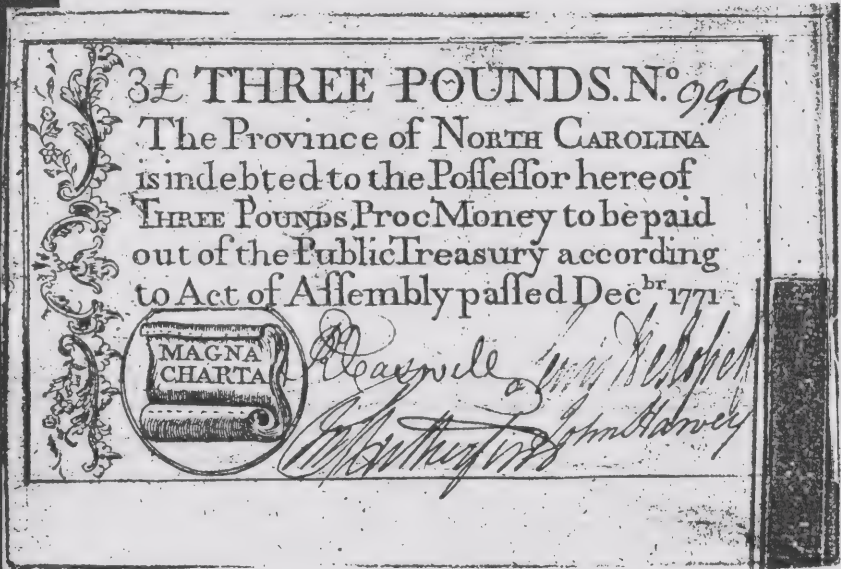 3£ THREE POUNDS. N.º 996
The Province of NORTH CAROLINA
is indebted to the Poſſeſſor here of
THREE POUNDS, Proc Money to be paid
out of the Public Treasury according
to Act of Aſſembly paſſed Dec.br 1771
MAGNA
CHARTA
R Caswell
John Harvey